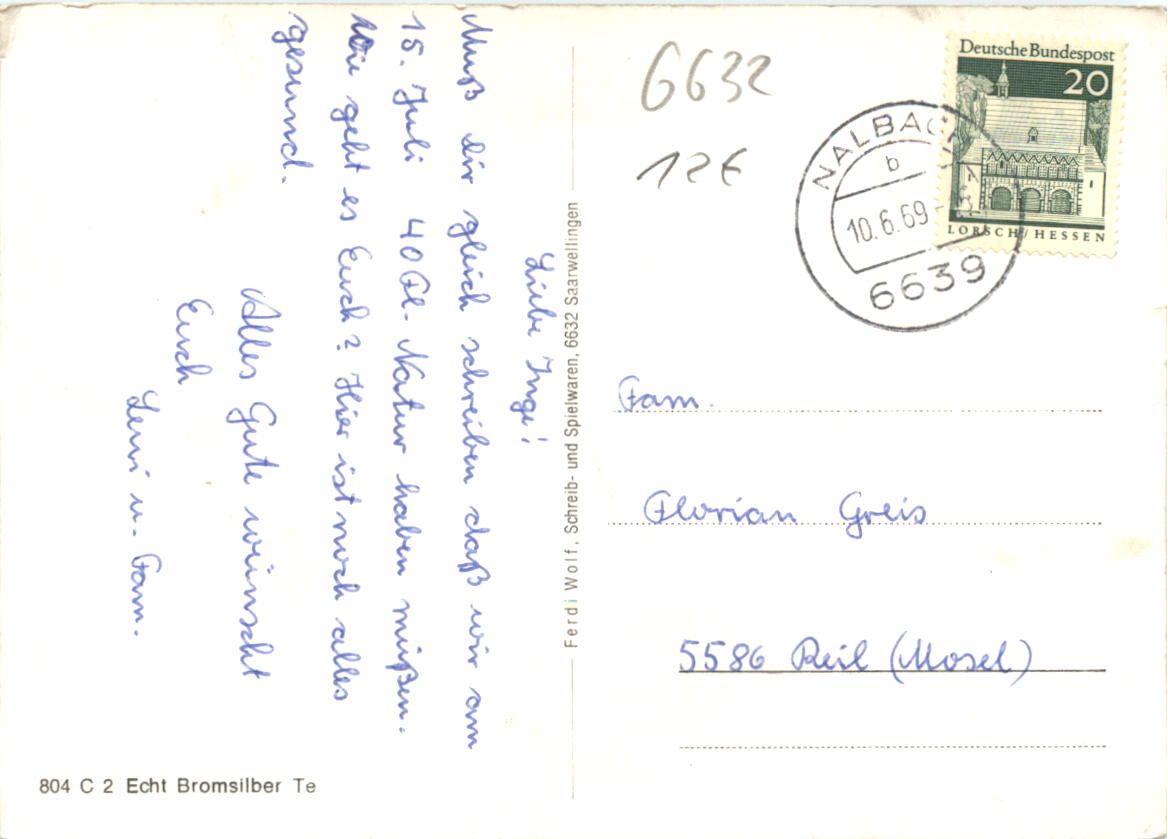 Liebe Inge!
Muß dir gleich schreiben daß wir am
15. Juli 40 Fl. Natur haben müßen.
Wie geht es Euch? Hier ist noch alles
gesund.
Alles Gute wünscht
Euch
Leni u. Fam.
804 C 2 Echt Bromsilber Te
Ferdi Wolf, Schreib- und Spielwaren, 6632 Saarwellingen
6632
12€
NALBACH
b
10.6.69
6639
Deutsche Bundespost
20
LORSCH / HESSEN
Fam.
Florian Greis
5586 Reil (Mosel)